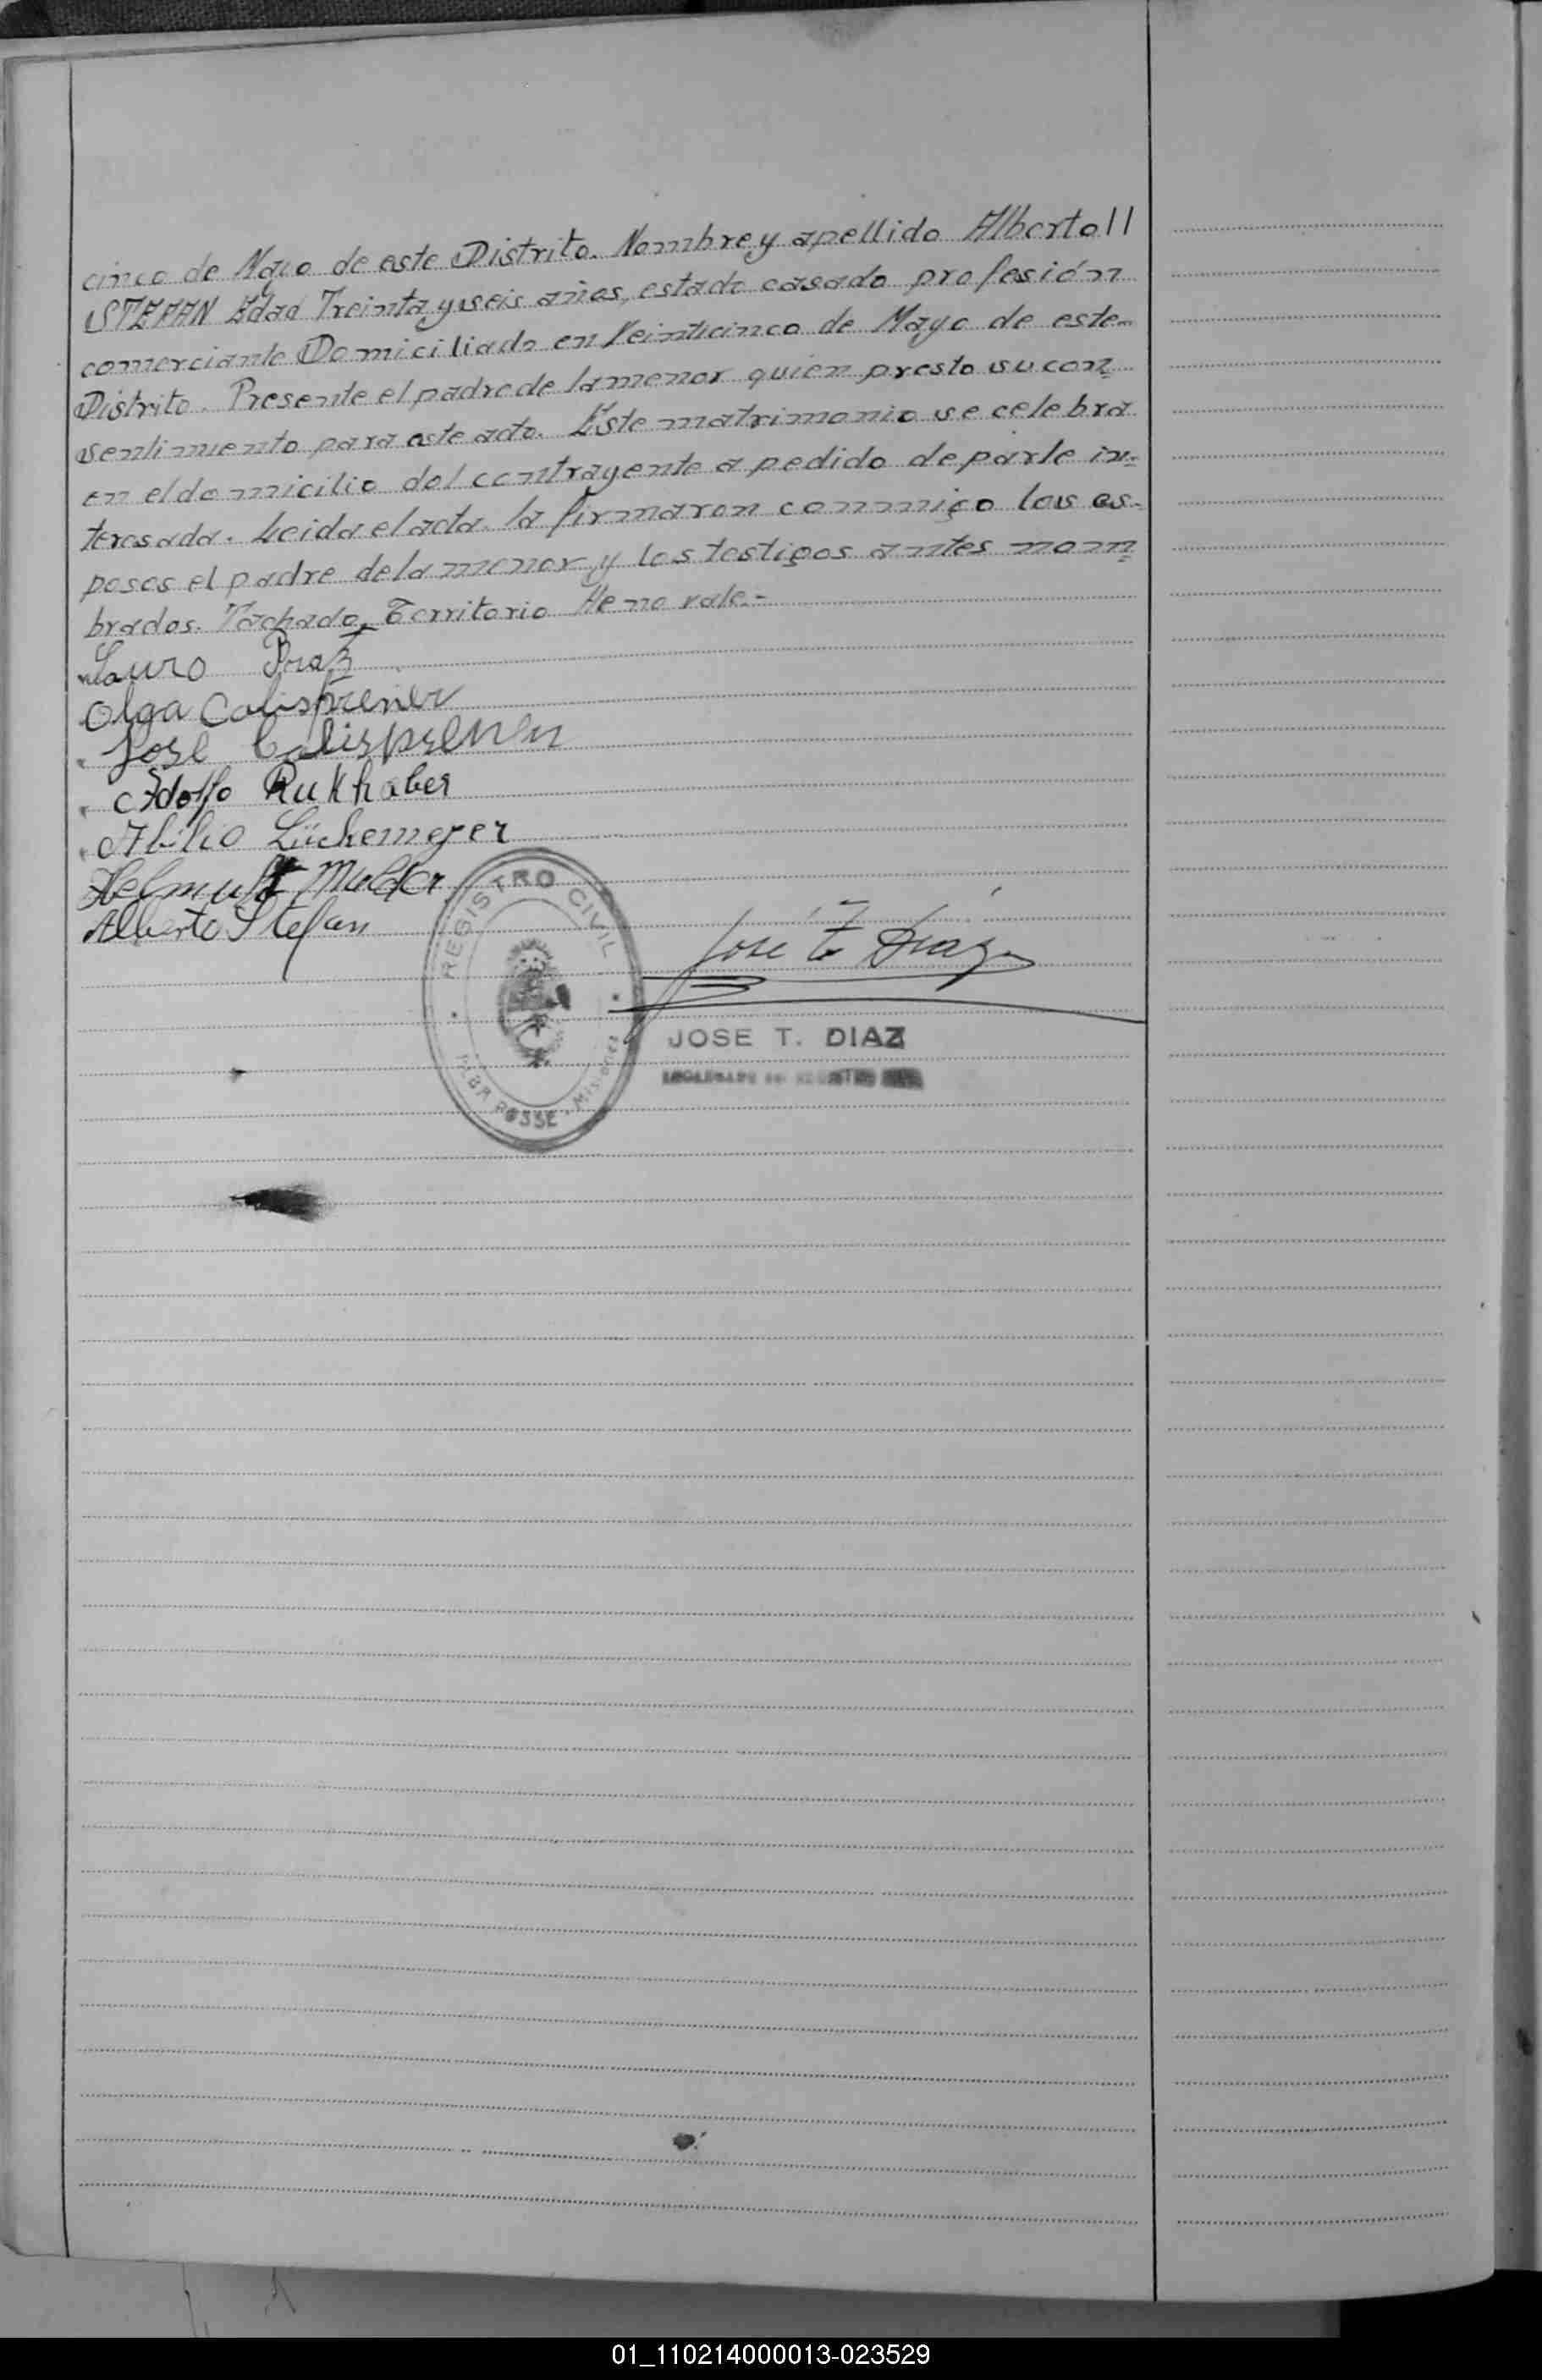 cinco de Mayo de este Distrito. Nombre y apellido Alberto //
STEFAN Edad Treinta y seis años, estado casado profesión
comerciante Domiciliado en Veinticinco de Mayo de este
Distrito. Presente el padre de la menor quien presto su con
sentimiento para este acto. Este matrimonio se celebra
en el domicilio del contrayente a pedido de parte in-
teresada. Leida el acta la firmaron conmigo los es-
posos el padre de la menor y los testigos antes nom
brados. Tachado, Territorio He no vale.-
Lauro Braz
Olga Calisprener
Jose Calisprener
Adolfo Rukhaber
Abilio Lückemeyer
Helmuth Mulder
Alberto Stefan
REGISTRO CIVIL
ALBA POSSE - MISIONES
Jose T Diaz
JOSE T. DIAZ
01_110214000013-023529